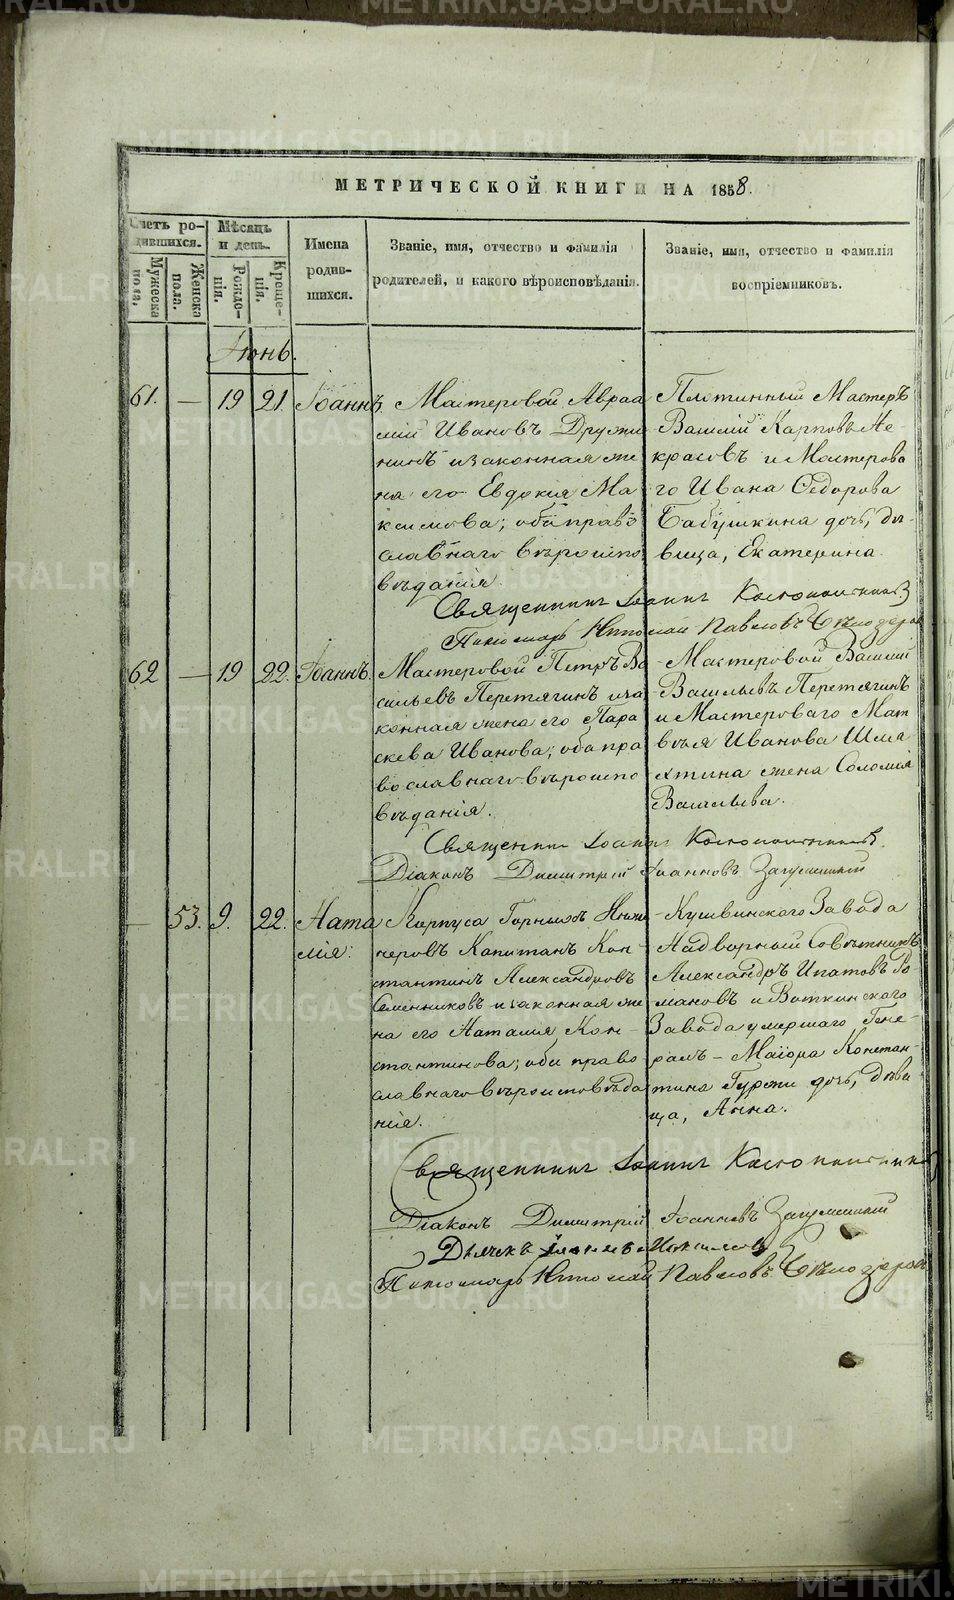 МЕТРИЧЕСКОЙ КНИГИ НА 1858.
Счетъ ро-
дившихся.
Мужеска
пола.
Женска
пола.
Мѣсяцъ
и день.
Рожде-
нія.
Креще-
нія.
Имена
родив-
шихся.
Званіе, имя, отчество и фамилія
родителей, и какого вѣроисповѣданія.
Званіе, имя, отчество и фамилія
воспріемниковъ.
Іюнь.
61. — 19 21. Іоаннъ.
Мастеровой Авраа
мій Ивановъ Дружи
нинъ и законная же
на его Евдокія Ма
ксимова; оба право
славнаго вѣроиспо
вѣданія.
Плотинный Мастеръ
Василій Карповъ Не-
красовъ и Мастерова
го Ивана Ѳедорова
Бабушкина дочь, дѣ-
вица, Екатерина.
Священникъ Іоаннъ
Пономарь Николай Павловъ
62 — 19 22. Іоаннъ.
Мастеровой Петръ Ва
сильевъ Перетягинъ и за
конная жена его Пара
скева Иванова; оба пра
вославнаго вѣроиспо
вѣданія.
Мастеровой Василій
Васильевъ Перетягинъ
и Мастероваго Мат
вѣя Иванова Шма
хтина жена Соломія
Васильева.
Священникъ Іоаннъ
Діаконъ Димитрій Іоанновъ
— 53. 9. 22. Ната
лія.
Корпуса Горныхъ Инже-
неровъ Капитанъ Кон-
стантинъ Александровъ
Семенниковъ и законная же
на его Наталія Кон-
стантинова; оба право
славнаго вѣроисповѣда
нія.
Кушвинскаго Завода
Надворный Совѣтникъ
Александръ Ипатовъ Ро
мановъ и Воткинскаго
Завода умершаго Гене-
ралъ-Маіора Констан-
тина Гуржи дочь, дѣви
ца, Анна.
Священникъ Іоаннъ
Діаконъ Димитрій Іоанновъ
Дьячекъ
Пономарь Николай Павловъ
METRIKI.GASO-URAL.RU